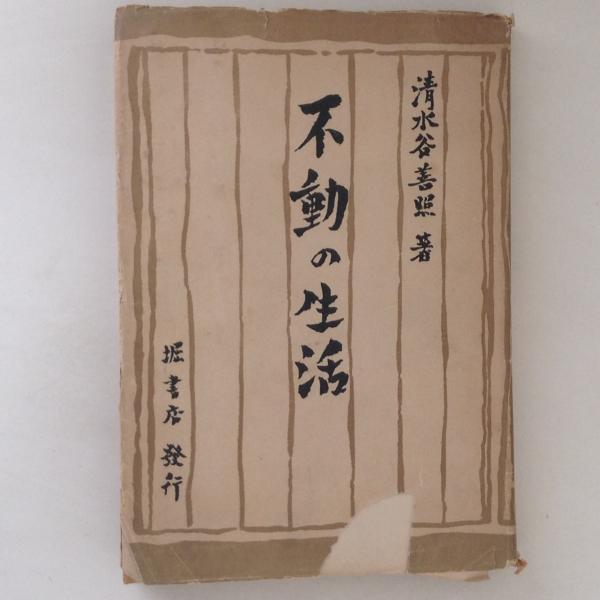 清水谷善照 著
不動の生活
堀書店 發行